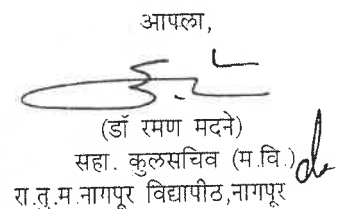 आपला,
(डॉ रमण मदने)
सहा. कुलसचिव (म.वि.)
रा.तु.म.नागपूर विद्यापीठ,नागपूर